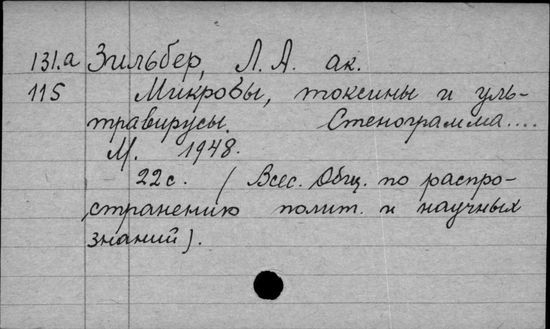 131.а Зильбер, Л. А. ак.
115 Микробы, токсины и уль-
травирусы. Стенограмма....
М. 1948.
22с. (Всес. Общ. по распро-
странению полит. и научных
знаний).